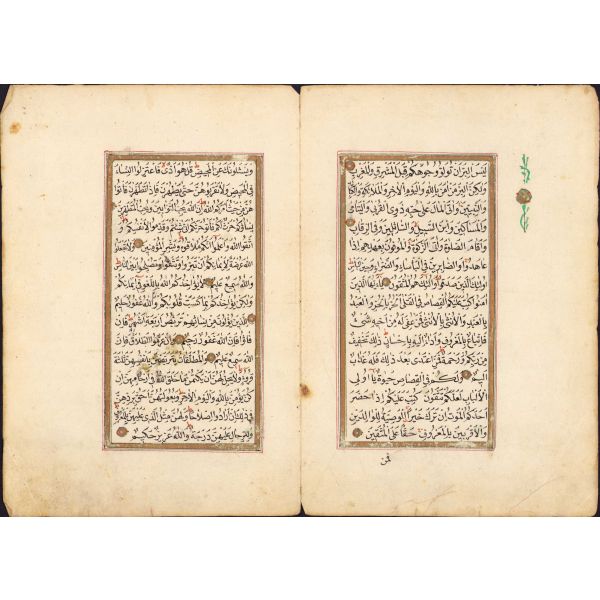 ليس البر ان تولوا وجوهكم قبل المشرق والمغرب
ولكن البر من آمن بالله واليوم الآخر والملائكة والكتاب
والنبيين وآتى المال على حبه ذوي القربى واليتامى
والمساكين وابن السبيل والسائلين وفي الرقاب
وأقام الصلوة وآتى الزكوة والموفون بعهدهم إذا
عاهدوا والصابرين في البأساء والضراء وحين البأس
أولئك الذين صدقوا وأولئك هم المتقون يا أيها الذين
آمنوا كتب عليكم القصاص في القتلى الحر بالحر والعبد
بالعبد والأنثى بالأنثى فمن عفي له من أخيه شيء
فاتباع بالمعروف وأداء إليه بإحسان ذلك تخفيف
من ربكم ورحمة فمن اعتدى بعد ذلك فله عذاب
أليم ولكم في القصاص حيوة يا أولي
الألباب لعلكم تتقون كتب عليكم إذا حضر
أحدكم الموت إن ترك خيرا الوصية للوالدين
والأقربين بالمعروف حقا على المتقين
فمن
ويسئلونك عن المحيض قل هو أذى فاعتزلوا النساء
في المحيض ولا تقربوهن حتى يطهرن فإذا تطهرن فأتوا
هن من حيث أمركم الله إن الله يحب التوابين ويحب المتطهرين
نساؤكم حرث لكم فأتوا حرثكم أنى شئتم وقدموا لأنفسكم و
اتقوا الله واعلموا أنكم ملاقوه وبشر المؤمنين ولا تجعلوا
الله عرضة لأيمانكم أن تبروا وتتقوا وتصلحوا بين الناس
والله سميع عليم لا يؤاخذكم الله باللغو في أيمانكم
ولكن يؤاخذكم بما كسبت قلوبكم والله غفور حليم
للذين يؤلون من نسائهم تربص أربعة أشهر فإن
فاؤا فإن الله غفور رحيم وإن عزموا الطلاق فإن
الله سميع عليم والمطلقات يتربصن بأنفسهن ثلثة
قروء ولا يحل لهن أن يكتمن ما خلق الله في أرحامهن إن
كن يؤمن بالله واليوم الآخر وبعولتهن أحق بردهن
في ذلك إن أرادوا إصلاحا ولهن مثل الذي عليهن بالمعروف
وللرجال عليهن درجة والله عزيز حكيم